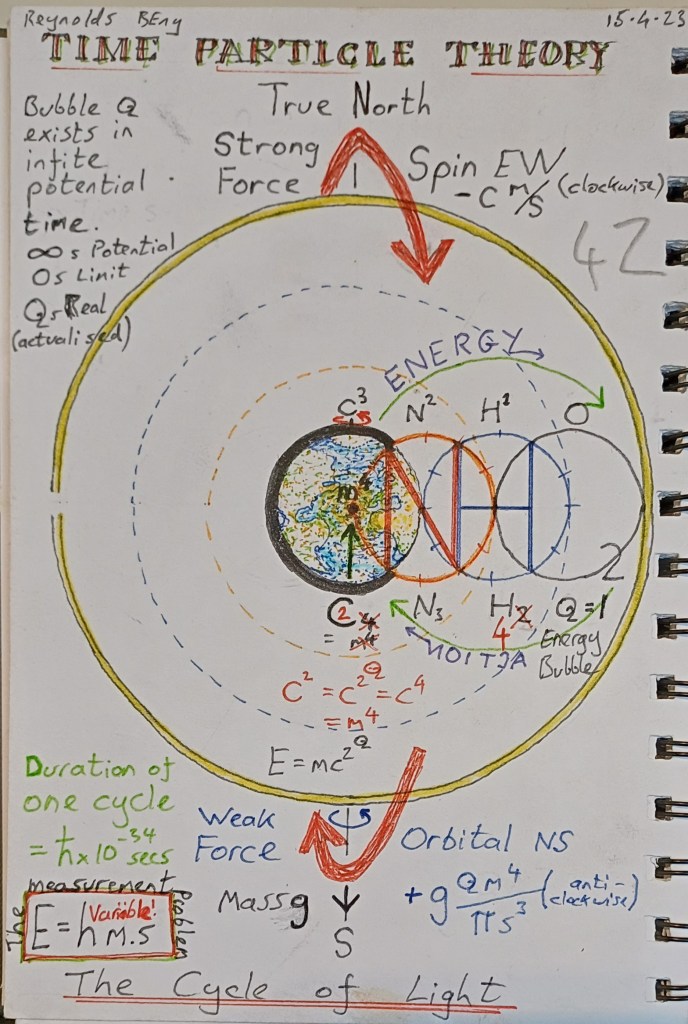 Reynolds BEng
15.4.23
TIME PARTICLE THEORY
Bubble Q
exists in
infite
potential .
time.
∞s Potential
0s Limit
Qs Real
(actualised)
True North
Strong
Force
Spin EW
-C m/s (clockwise)
42
ENERGY
C³
N²
H²
O
m⁴
N
H
2
C 2 4
= m⁴
N₃
H 2
4
Q=1
Energy
Bubble
ACTION
C² = C²Q = C⁴
= m⁴
E = mc²Q
Duration of
one cycle
= 1/h x 10⁻³⁴
secs
Weak
Force
Orbital NS
+g Qm⁴/πs³ (anti-
clockwise)
Mass g
S
The measurement Problem
Variable!
E = h m.s
The Cycle of Light